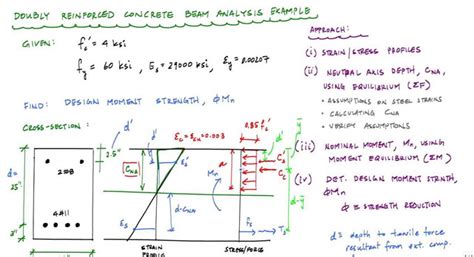 DOUBLY REINFORCED CONCRETE BEAM ANALYSIS EXAMPLE
GIVEN: fc' = 4 ksi
fy = 60 ksi, Es = 29000 ksi, Ey = 0.00207
FIND: DESIGN MOMENT STRENGTH, φMn
CROSS-SECTION:
d'
2.5"
d=
25"
2#8
4#11
3"
εc = εcu = 0.003
0.85 fc'
d'
CNA
εs'
a
Cs
Cc
Mn
d-CNA
d-ȳ
εs
fs
Ts
STRAIN
PROFILE
STRESS/FORCE
APPROACH:
(i) STRAIN/STRESS PROFILES
(ii) NEUTRAL AXIS DEPTH, CNA,
USING EQUILIBRIUM (ΣF)
• ASSUMPTIONS ON STEEL STRAINS
• CALCULATING CNA
• VERIFY ASSUMPTIONS
(iii) NOMINAL MOMENT, Mn, USING
MOMENT EQUILIBRIUM (ΣM)
(iv) DET. DESIGN MOMENT STRNTH,
φMn
φ = STRENGTH REDUCTION
d = depth to tensile force
resultant from ext. comp.